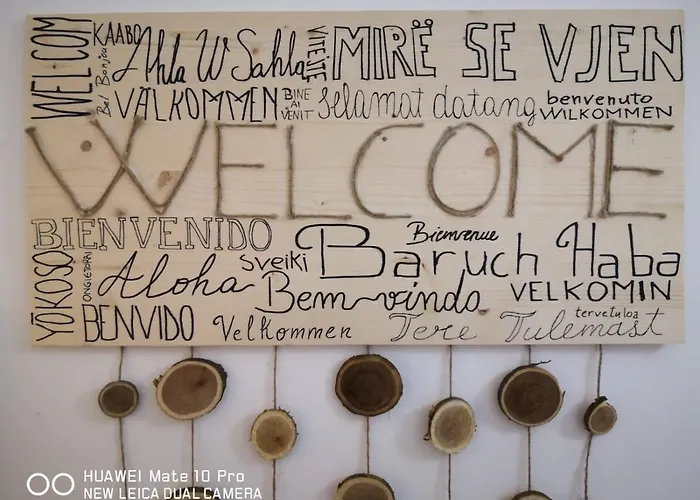 WELCOM
KAABO
Bel Bonjou
Ahla W Sahla
VITEJTE
MIRË SE VJEN
VÄLKOMMEN
BINE
AI
VENIT
selamat datang
benvenuto
WILKOMMEN
WELCOME
BIENVENIDO
Bienvenue
YŌKOSO
ONGIETORRI
Aloha
Sveiki
Baruch Haba
Bem-vindo
VELKOMIN
BENVIDO
Velkommen
Tere Tulemast
tervetuloa
HUAWEI Mate 10 Pro
NEW LEICA DUAL CAMERA